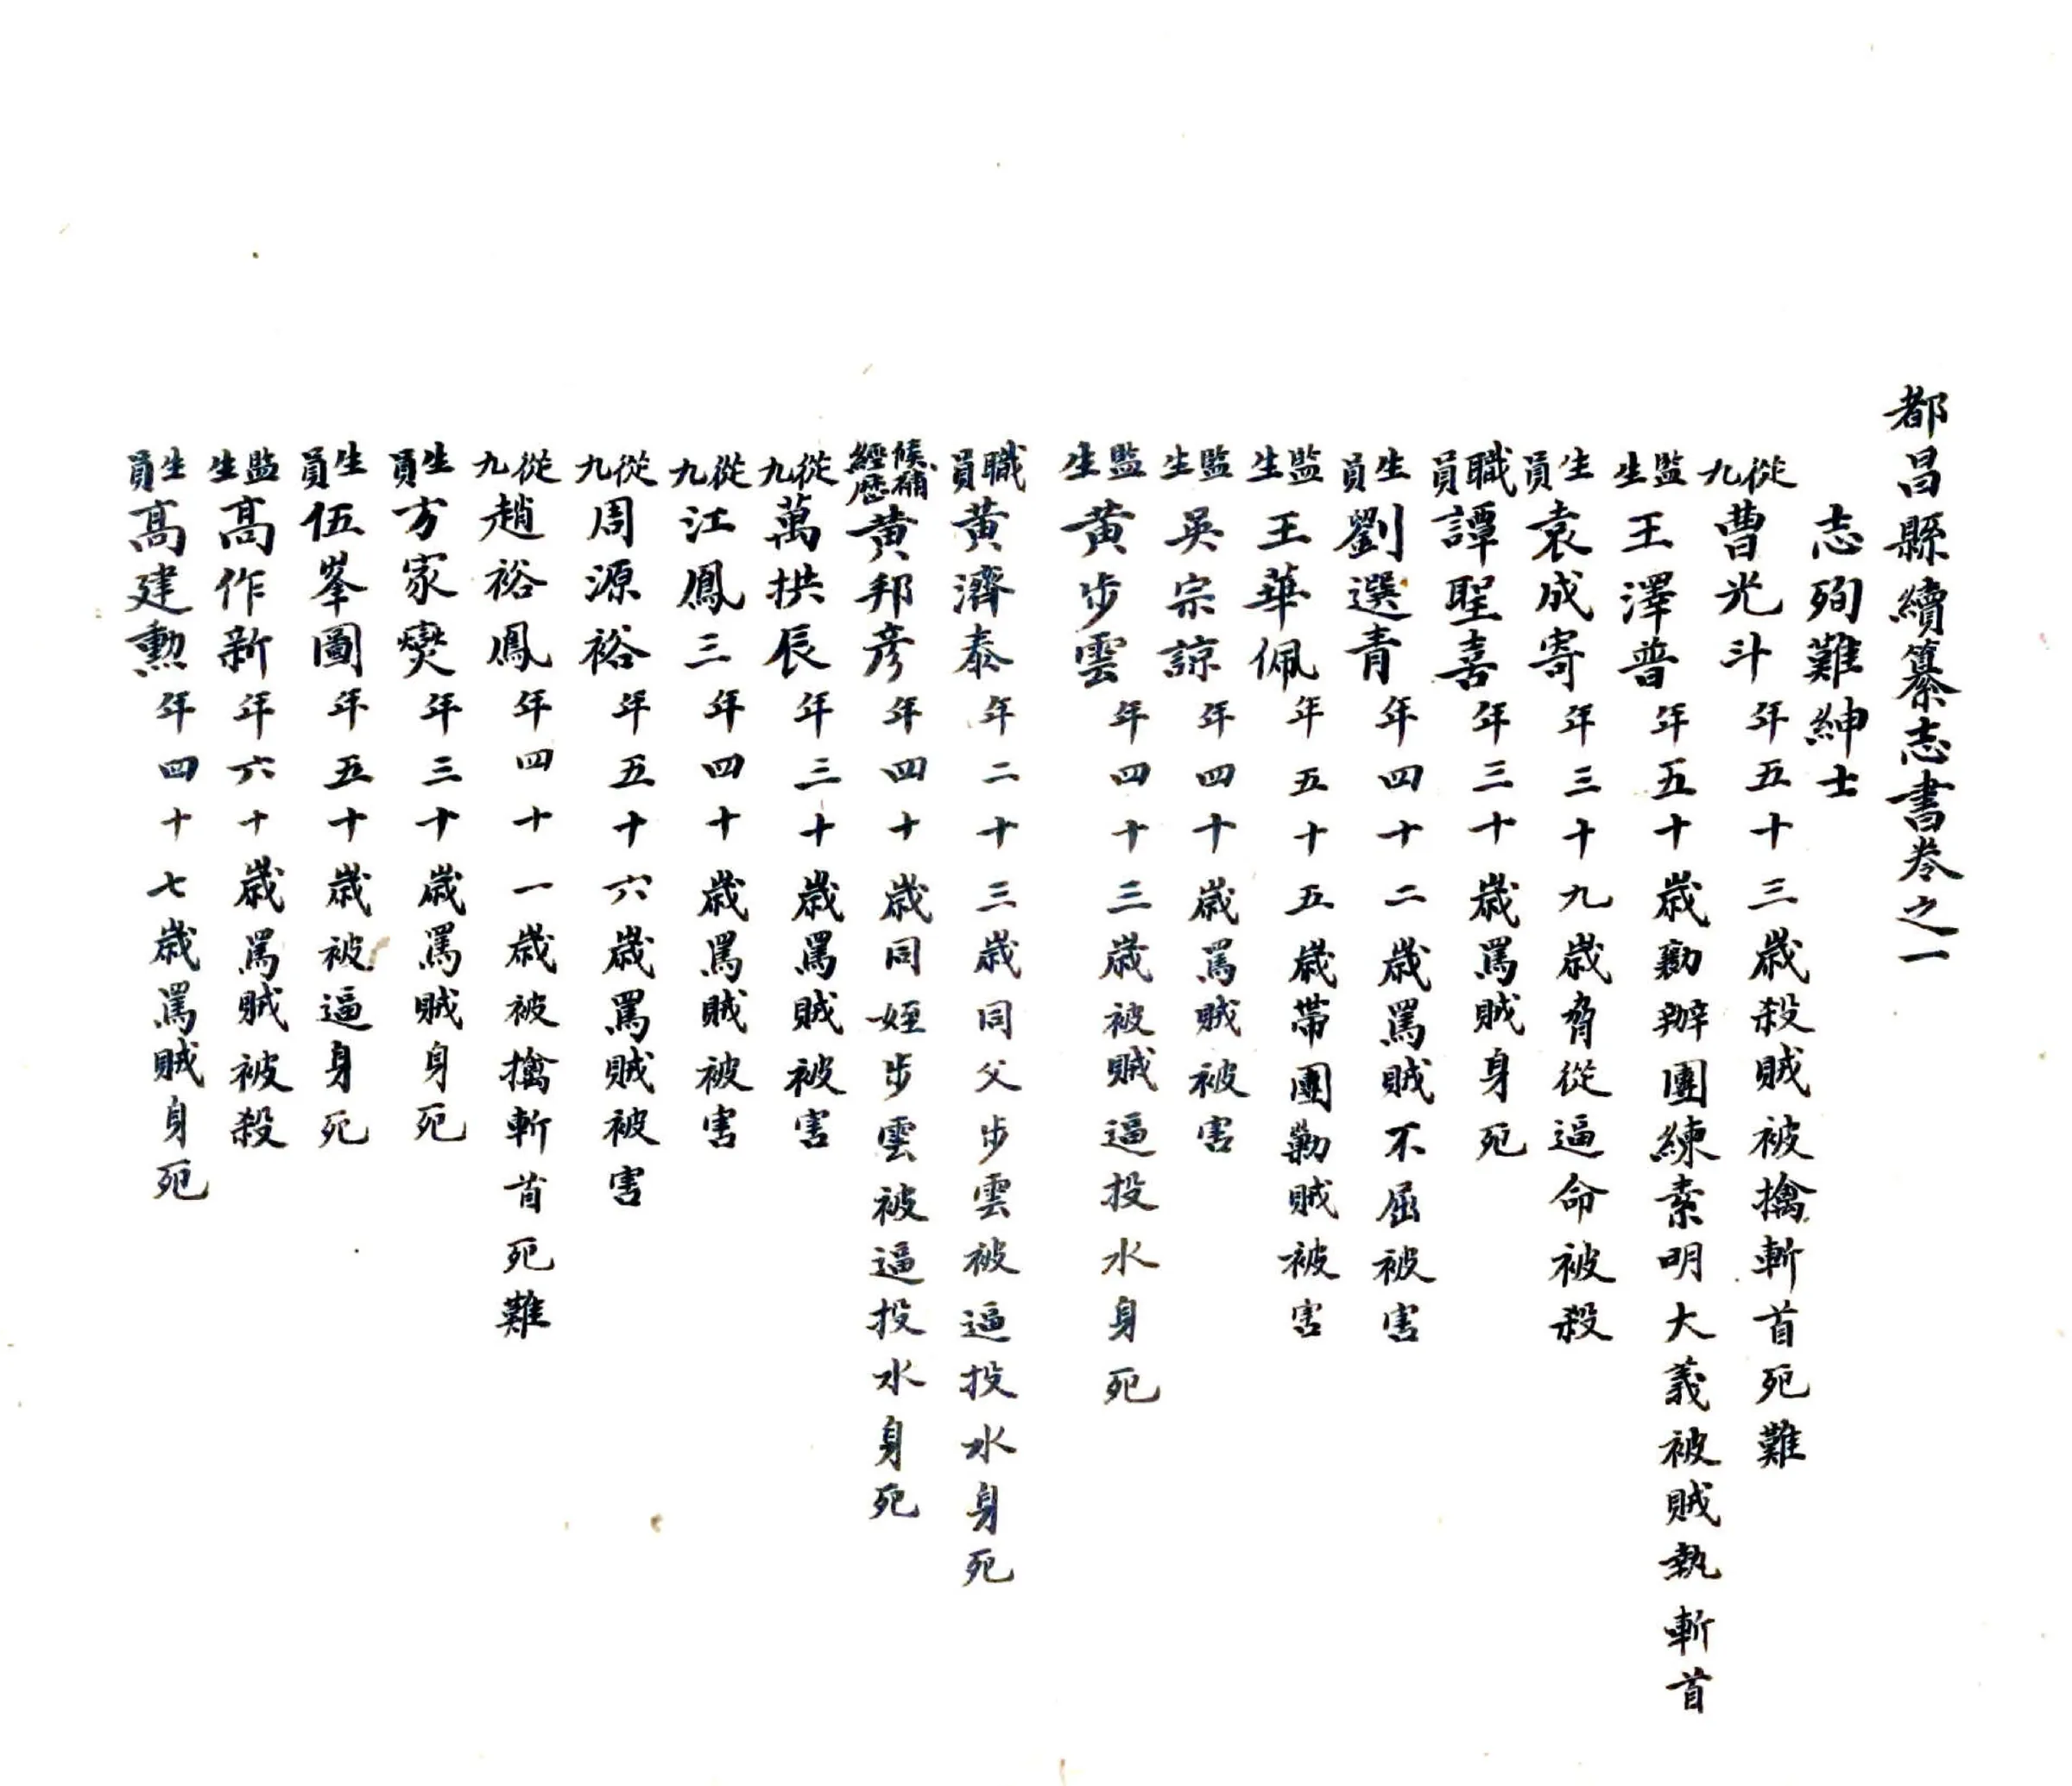 都昌縣續纂志書卷之一
志殉難紳士
從九曹光斗年五十三歲殺賊被擒斬首死難
監生王澤普年五十歲勸辦團練素明大義被賊執斬首
生員袁成寄年三十九歲脅從逼命被殺
職員譚聖喜年三十歲罵賊身死
生員劉選青年四十二歲罵賊不屈被害
監生王華佩年五十五歲帶團勦賊被害
監生吳宗諒年四十歲罵賊被害
監生黃步雲年四十三歲被賊逼投水身死
職員黃濟泰年二十三歲同父步雲被逼投水身死
候補經歷黃邦彦年四十歲同姪步雲被逼投水身死
從九萬拱辰年三十歲罵賊被害
從九江鳳三年四十歲罵賊被害
從九周源裕年五十六歲罵賊被害
從九趙裕鳳年四十一歲被擒斬首死難
生員方家爕年三十歲罵賊身死
生員伍峯圖年五十歲被逼身死
監生高作新年六十歲罵賊被殺
生員高建勳年四十七歲罵賊身死